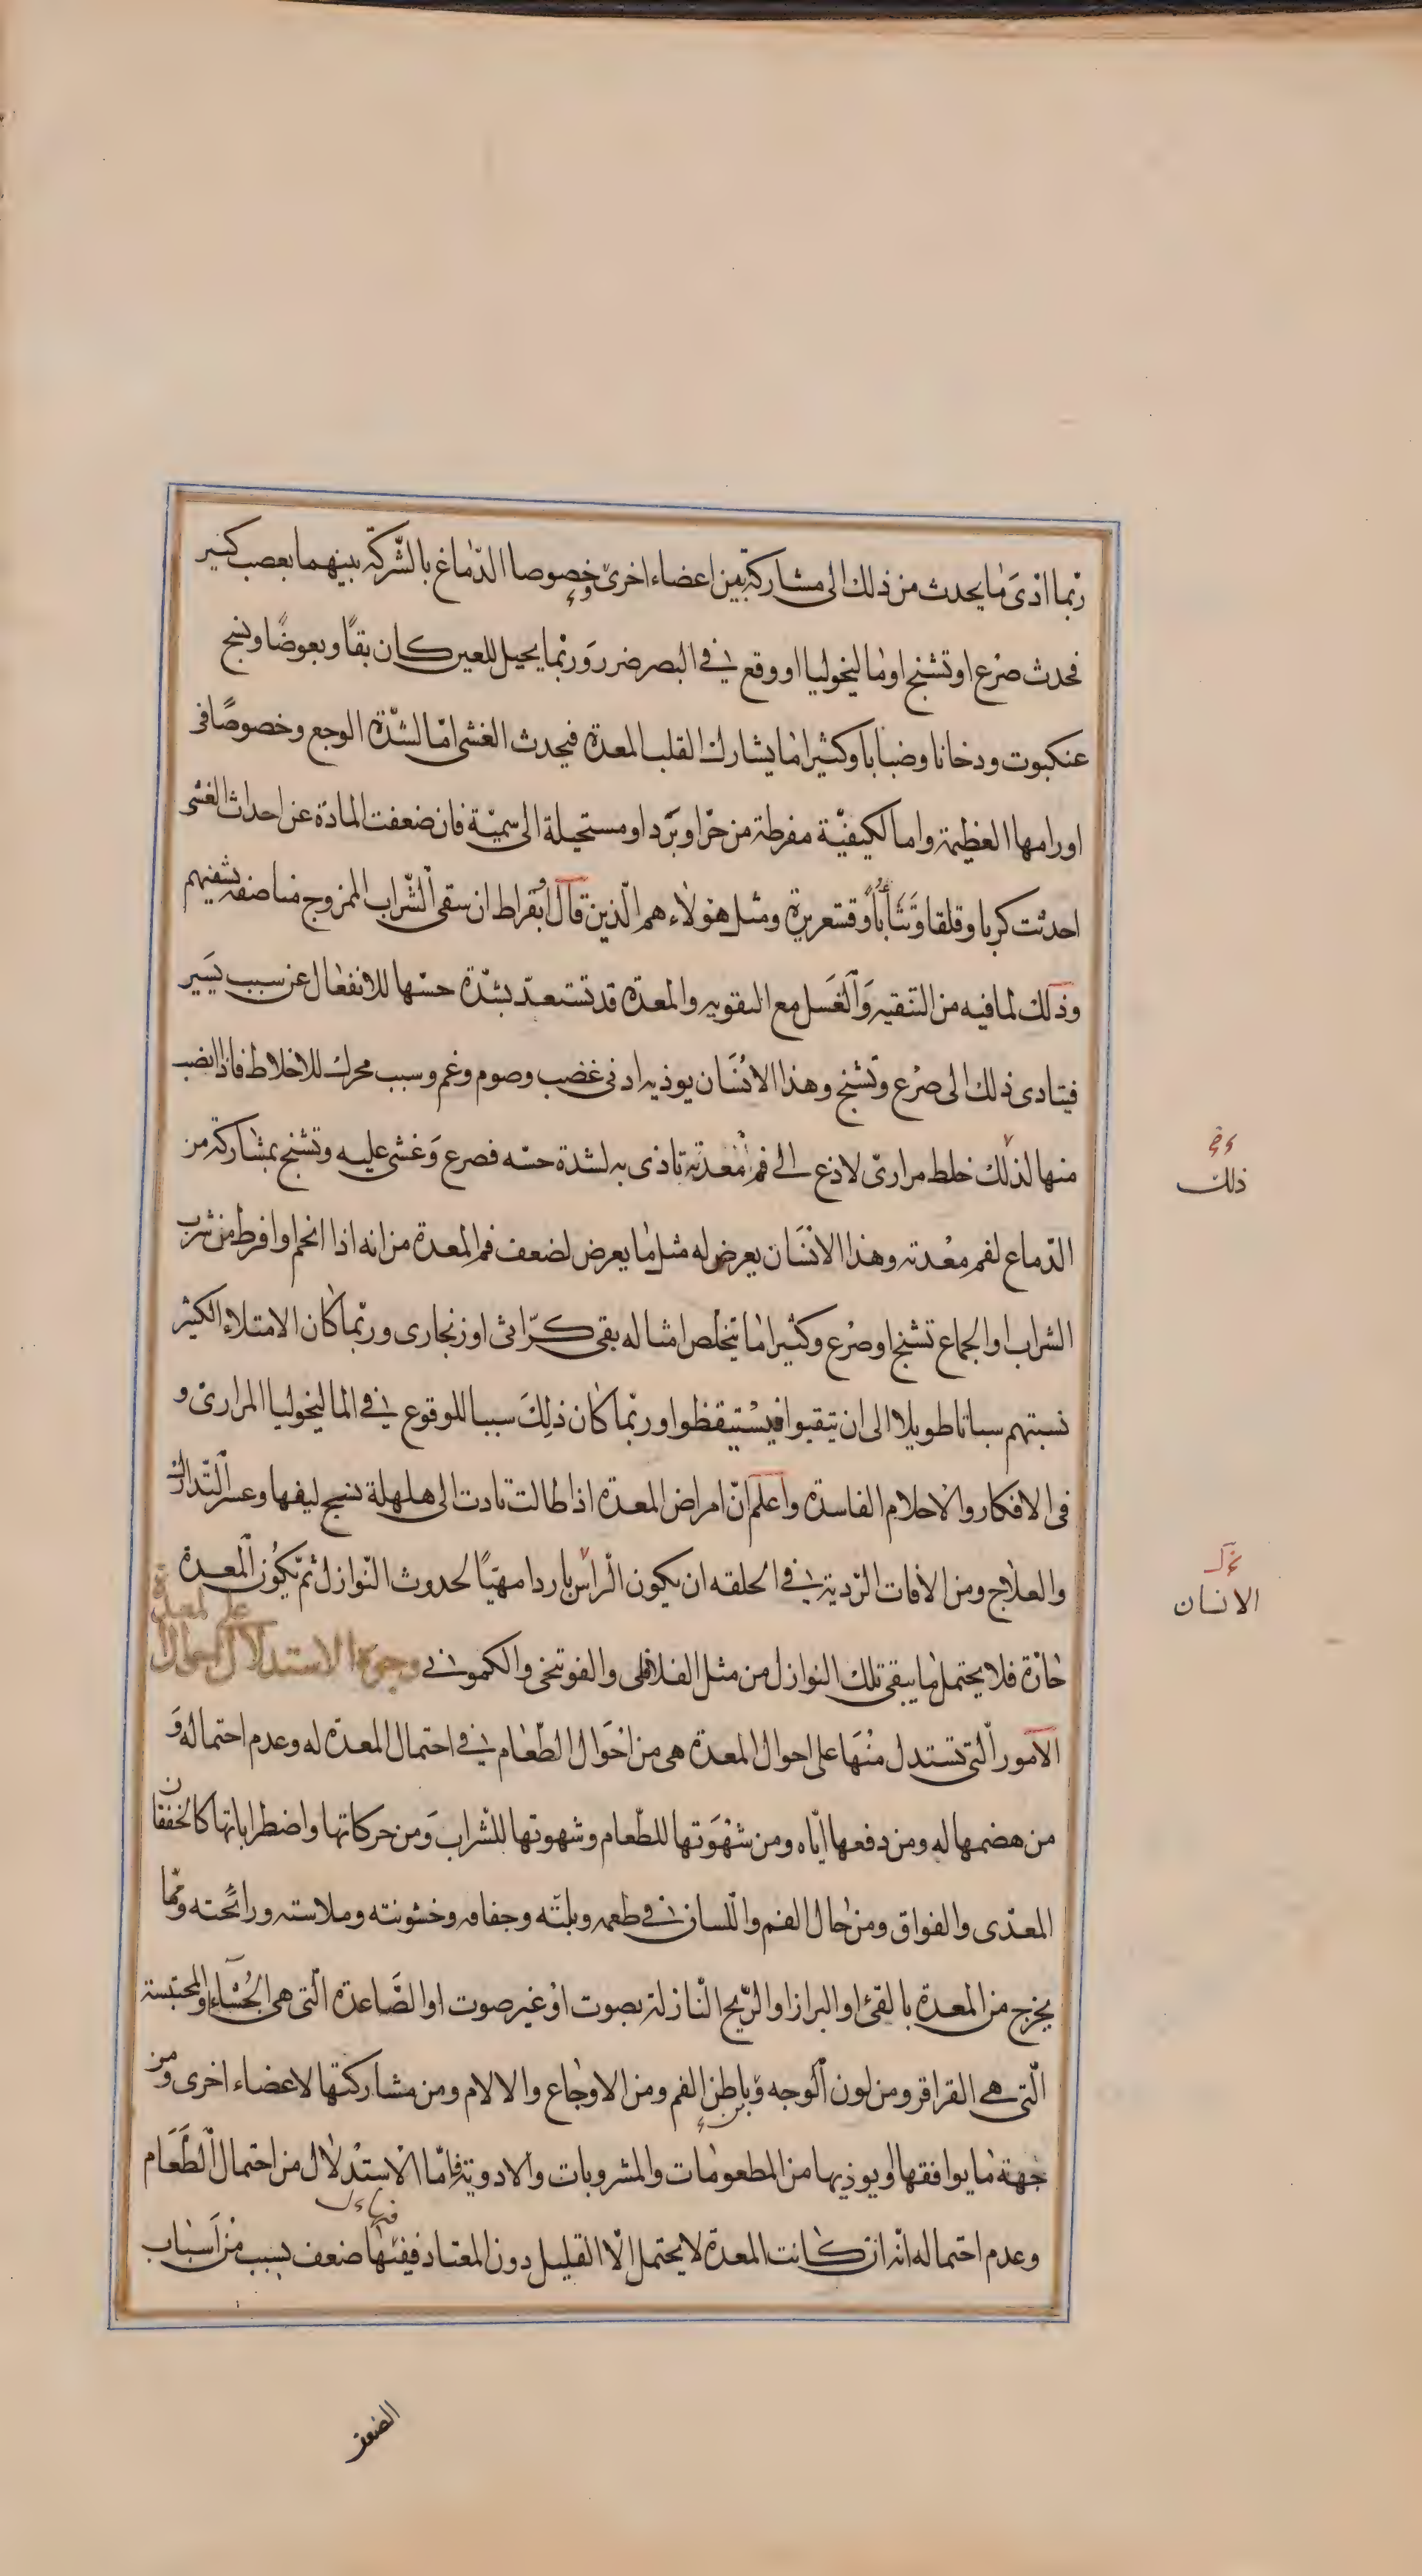 ربّما ادّى ما يحدث من ذلك الى مشاركة بين اعضاء اخرى وخصوصا الدّماغ بالشّركة بينهما بعصب كبير
فحدث صرع او تشنج او ماليخوليا او وقع فى البصر ضرر وربّما يخيل للعين كان بقًا وبعوضًا ونسج
عنكبوت ودخانا وضبابا وكثيرا ما يشارك القلب المعدة فيحدث الغشى امّا لشدّة الوجع وخصوصًا فى
اورامها العظيمة واما لكيفيّة مفرطة من حرّ او برد او مستحيلة الى سميّة فان ضعفت المادة عن احداث الغشى
احدثت كربا وقلقا وتثأبا وقشعريرة ومثل هؤلاء هم الّذين قال ابقراط ان سقى الشّراب الممزوج مناصفة يشفيهم
وذلك لما فيه من التنقيه والغسل مع التقويه والمعدة قد تستعدّ بشدّة حسّها للانفعال عن سبب يسير
فيتادى ذلك الى صرع وتشنج وهذا الانسان يوذيه ادنى غضب وصوم وغم وسبب محرك للاخلاط فاذا انصب
منها لذلك خلط مرارىّ لاذع الى فم معدته تاذى به لشدة حسّه فصرع وغشى عليه وتشنج بمشاركة من
الدّماغ لفم معدته وهذا الانسان يعرض له مثل ما يعرض لضعف فم المعدة من انه اذا اتخم او افرط من شرب
الشراب او الجماع تشنج او صرع وكثيرا ما يتخلص امثاله بقى كرّاثى او زنجارى وربّما كان الامتلاء الكثير
نسبتهم سباتا طويلا الى ان يتقيوا فيستيقظوا وربّما كان ذلك سببا للوقوع فى الماليخوليا المرارىّ و
فى الافكار والاحلام الفاسدة واعلم انّ امراض المعدة اذا طالت تادت الى هلهلة نسج ليفها وعسر التّدارك
والعلاج ومن الافات الرّدية فى الخلقه ان يكون الرأس باردا مهيّا لحدوث النّوازل ثمّ تكون المعدة
حارّة فلا يحتمل ما يبقى تلك النوازل من مثل الفلافلى والفوتنجى والكمونى وجوه الاستدلال احوال
على المعدة
الامور الّتى تستدل منها على احوال المعدة هى من احوال الطّعام فى احتمال المعدة له وعدم احتماله و
من هضمها له ومن دفعها ايّاه ومن شهوتها للطّعام وشهوتها للشراب ومن حركاتها واضطراباتها كالخفقان
المعدّى والفواق ومن حال الفم واللّسان فى طعمه وبلته وجفافه وخشونته وملاسته ورائحته وممّا
يخرج من المعدة بالقئ او البراز او الرّيح النّازلة بصوت او غير صوت او الصّاعدة الّتى هى الجُشاء او المحتبسة
الّتى هى القراقر ومن لون الوجه وباطن الفم ومن الاوجاع والالام ومن مشاركتها لاعضاء اخرى ومن
جهة ما يوافقها او يوذيها من المطعومات والمشروبات والادوية فامّا الاستدلال من احتمال الطّعام
وعدم احتماله انّه ان كانت المعدة لا يحتمل الّا القليل دون المعتاد ففيها ضعف بسبب من اسباب
ذلك
الانسان
الضعف